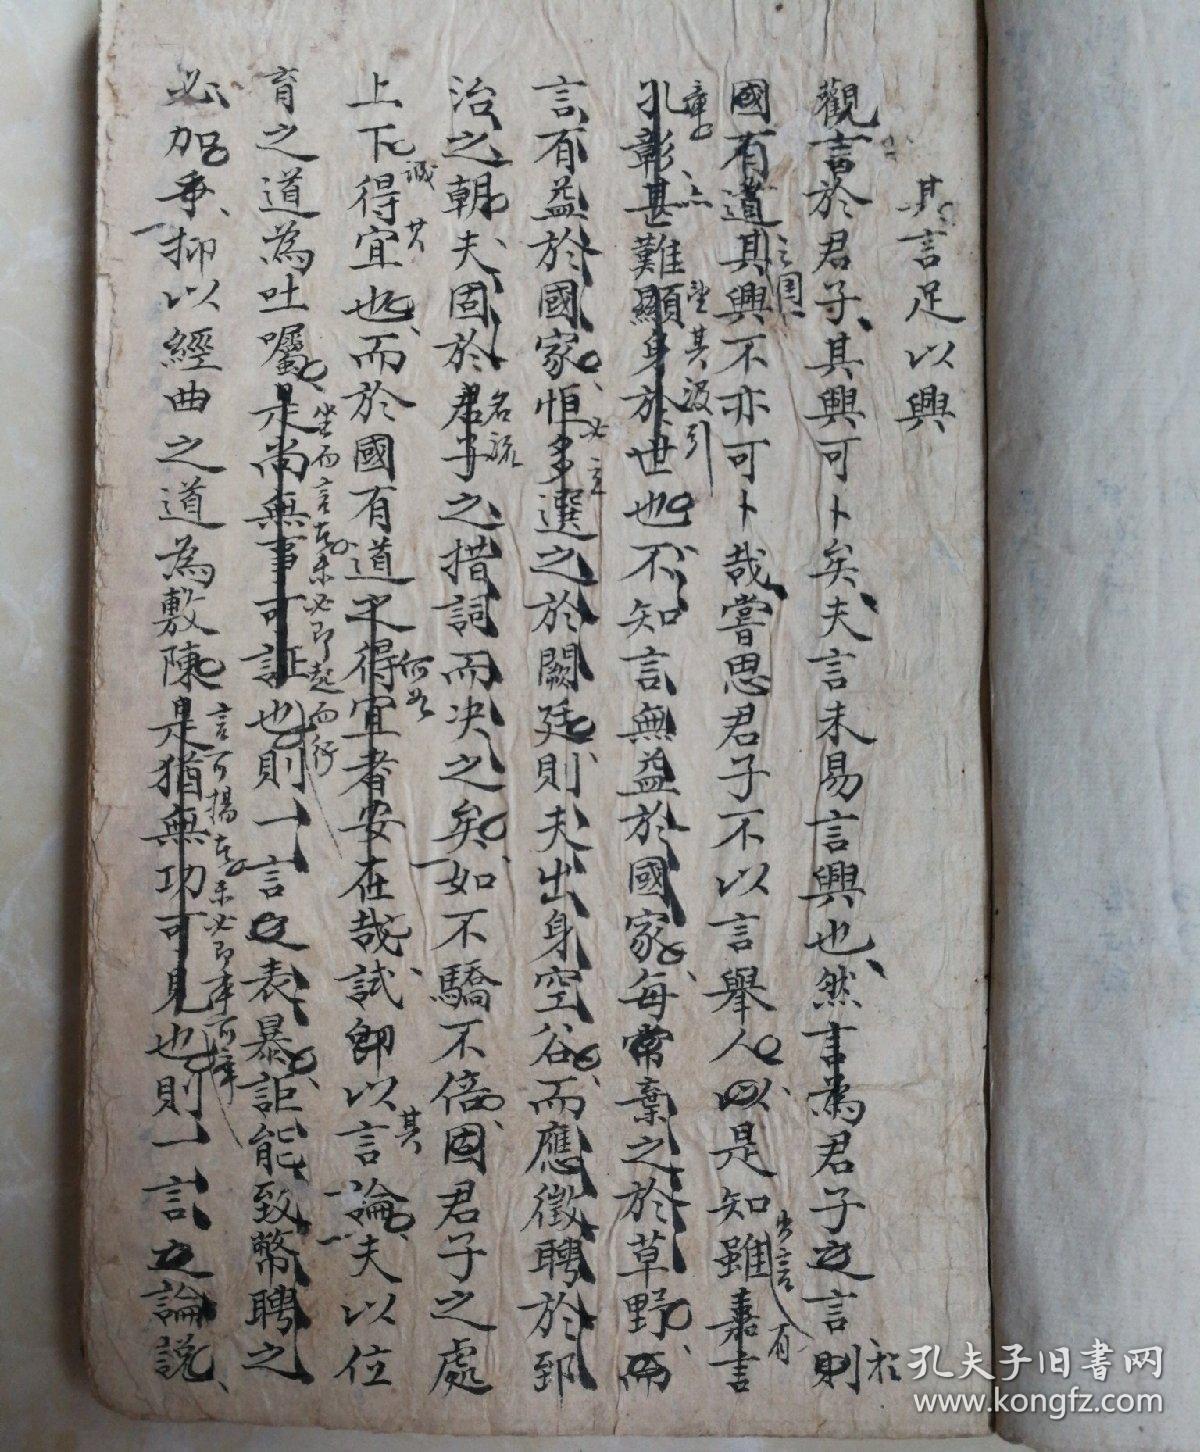 其言足以興
觀言於君子其興可卜矣夫言未易言興也然言為君子之言則
國有道其興不亦可卜哉嘗思君子不以言舉人以是知雖嘉言
孔彰甚難顯身於世也不知言無益於國家每常棄之於草野而
言有益於國家恒多選之於闕廷則夫出身空谷而應徵聘於郅
治之朝夫固於君子之措詞而决之矣如不驕不倍固君子之處
上下得宜也而於國有道之得宜者安在哉試即以言論夫以位
育之道為吐囑是尚無事可証也則一言之表暴詎能致幣聘之
必加乎抑以經曲之道為敷陳是猶無功可見也則一言之論說
孔夫子旧书网
www.kongfz.com